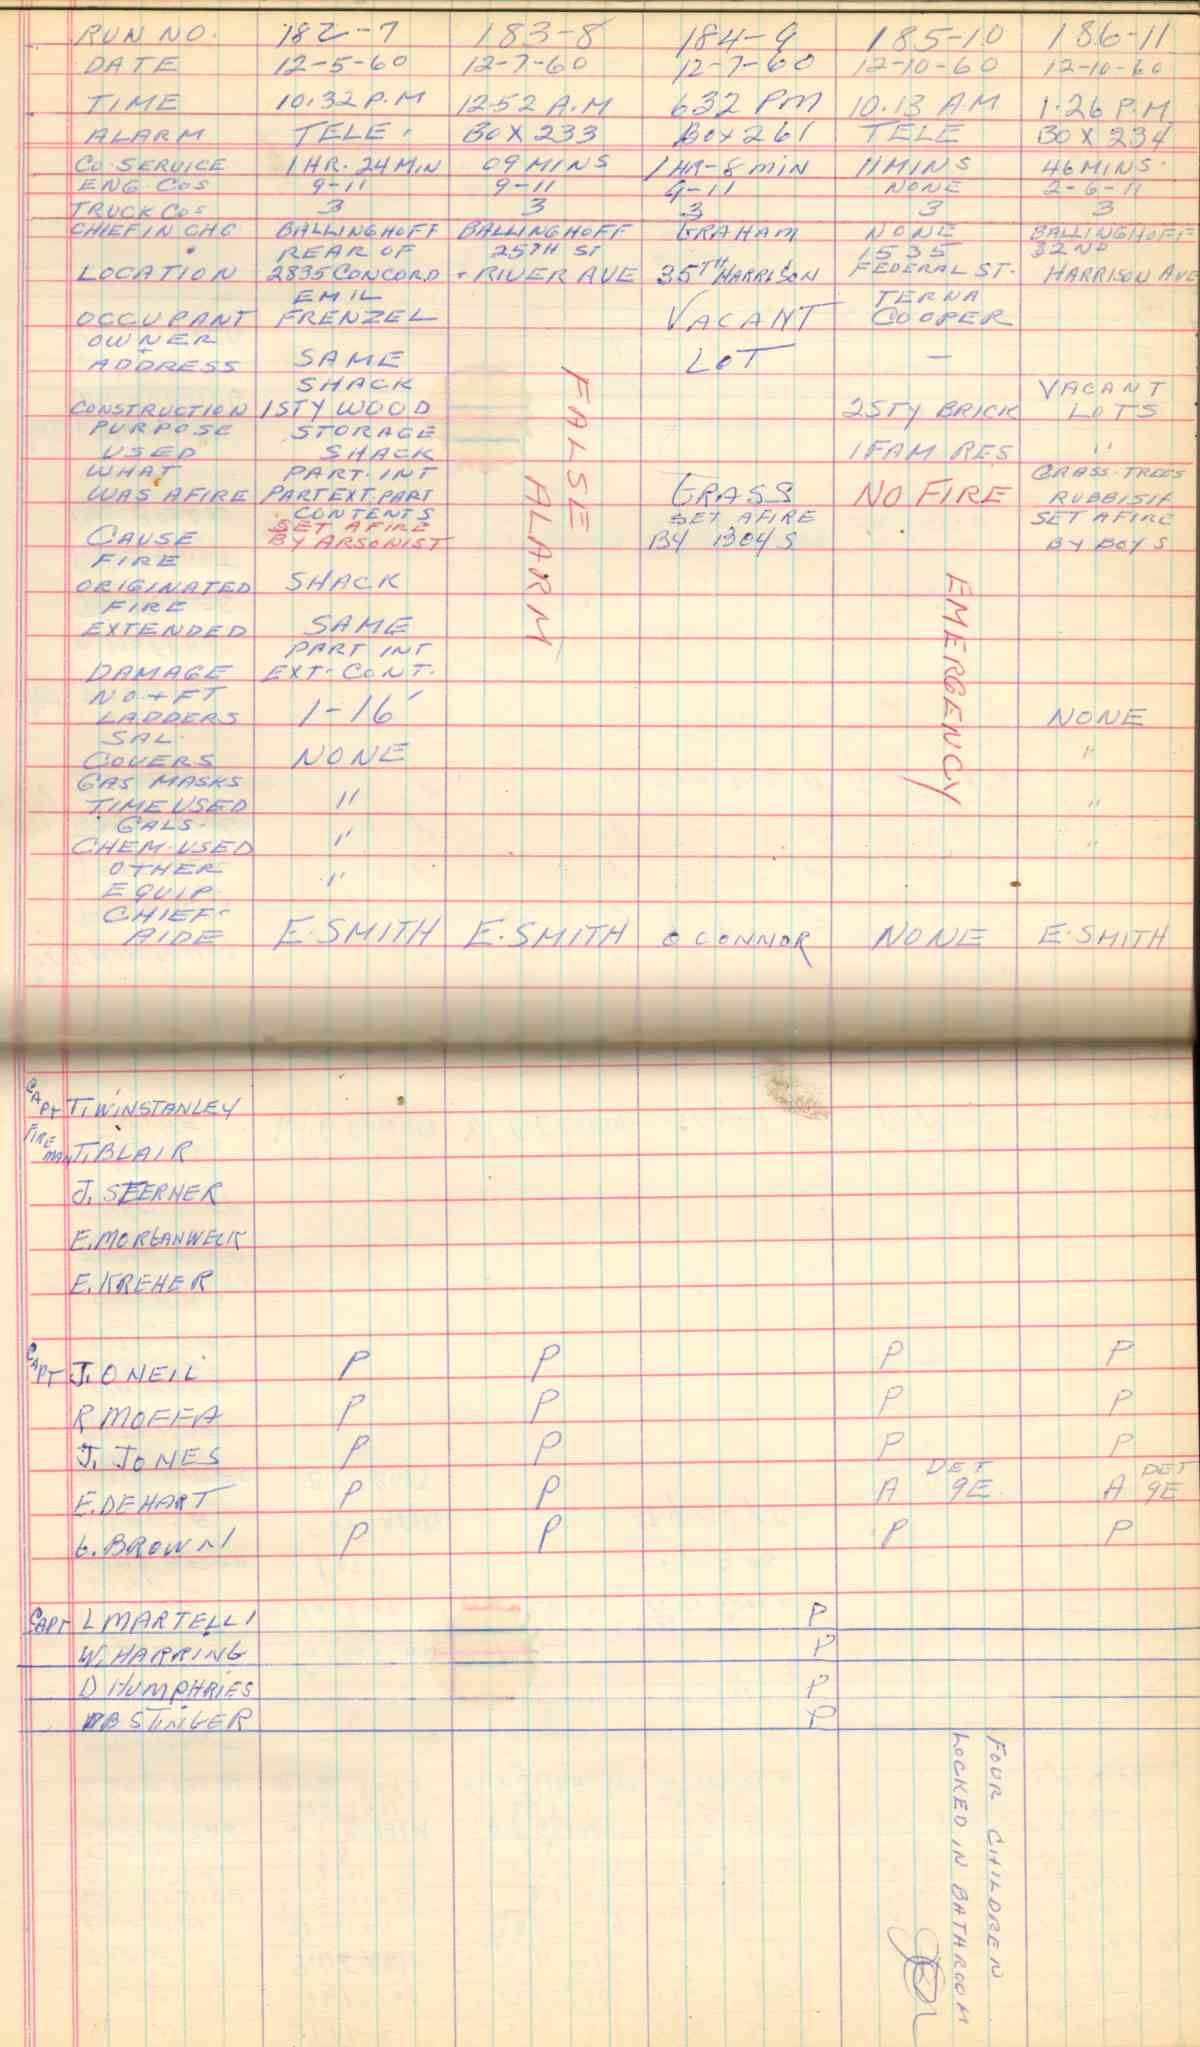 RUN NO. 182-7 183-8 184-9 185-10 186-11
DATE 12-5-60 12-7-60 12-7-60 12-10-60 12-10-60
TIME 10.32 P.M 12.52 A.M 632 PM 10.13 AM 1.26 P.M
ALARM TELE. BOX 233 BOX 261 TELE BOX 234
CO. SERVICE 1 HR. 24 MIN 09 MINS 1 HR-8 MIN 11 MINS 46 MINS.
ENG. COS 9-11 9-11 9-11 NONE 2-6-11
TRUCK COS 3 3 3 3 3
CHIEF IN CHG BALLINGHOFF BALLINGHOFF GRAHAM NONE BALLINGHOFF
REAR OF 25TH ST 1535 32ND
LOCATION 2835 CONCORD + RIVER AVE 35TH HARRISON FEDERAL ST. HARRISON AVE
EMIL TERNA
OCCUPANT FRENZEL VACANT COOPER
OWNER
+
ADDRESS SAME LOT —
SHACK VACANT
CONSTRUCTION 1 STY WOOD 2 STY BRICK LOTS
PURPOSE STORAGE
USED SHACK 1 FAM RES "
WHAT PART. INT GRASS-TREES
WAS AFIRE PART EXT. PART GRASS NO FIRE RUBBISH
CONTENTS SET AFIRE SET AFIRE
SET AFIRE
CAUSE BY ARSONIST BY BOYS BY BOYS
FIRE
ORIGINATED SHACK
FIRE
EXTENDED SAME
PART INT
DAMAGE EXT-CONT.
NO. + FT
LADDERS 1-16' NONE
SAL.
COVERS NONE "
GAS MASKS
TIME USED " "
GALS.
CHEM. USED " "
OTHER
EQUIP. "
CHIEF-
AIDE E. SMITH E. SMITH O CONNOR NONE E. SMITH
FALSE
ALARM
EMERGENCY
CAPT T. WINSTANLEY
FIREMAN T. BLAIR
J. STERNER
E. MORGANWECK
E. KREHER
CAPT J. O NEIL P P P P
R MOFFA P P P P
J. JONES P P P P
DET DET
E. DEHART P P A 9E A 9E
G. BROWN P P P P
CAPT L MARTELLI P
W. HARRING P
D HUMPHRIES P
B STINGER P
FOUR CHILDREN
LOCKED IN BATHROOM